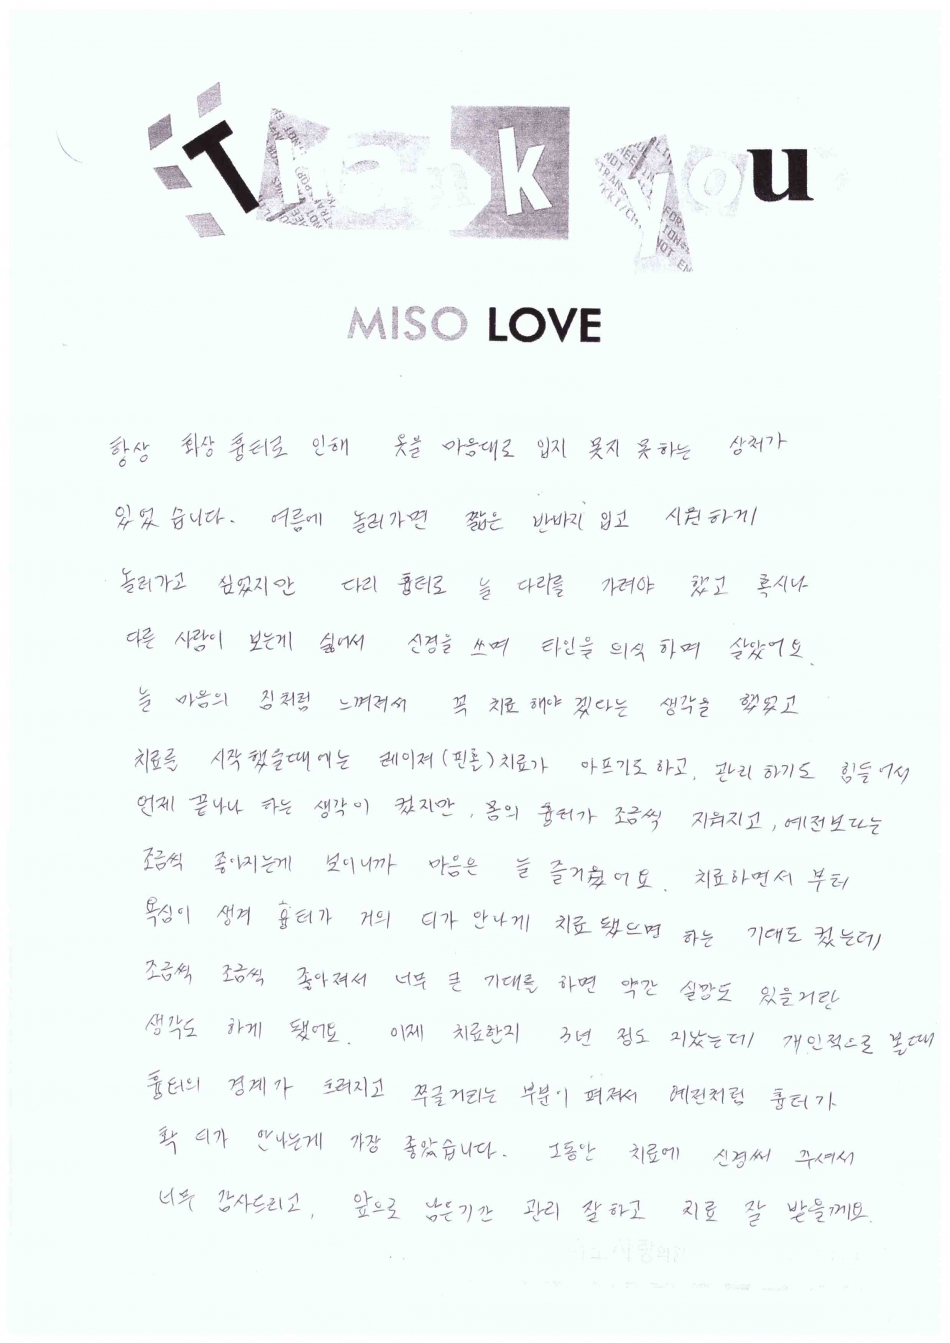 Thank you
MISO LOVE
항상 화상 흉터로 인해 옷을 마음대로 입지 못지 못하는 상처가
있었습니다. 여름에 놀러가면 짧은 반바지 입고 시원하게
놀러가고 싶었지만 다리 흉터로 늘 다리를 가려야 했고 혹시나
다른 사람이 보는게 싫어서 신경을 쓰며 타인을 의식하며 살았어요.
늘 마음의 짐처럼 느껴져서 꼭 치료해야겠다는 생각을 했었고
치료를 시작했을때에는 레이져(핀홀)치료가 아프기도하고, 관리하기도 힘들어서
언제 끝나나 하는 생각이 컸지만, 몸의 흉터가 조금씩 지워지고, 예전보다는
조금씩 좋아지는게 보이니까 마음은 늘 즐거웠어요. 치료하면서 부터
욕심이 생겨 흉터가 거의 티가 안나게 치료됐으면 하는 기대도 컸는데
조금씩 조금씩 좋아져서 너무 큰 기대를 하면 약간 실망도 있을거란
생각도 하게 됐어요. 이제 치료한지 3년 정도 지났는데 개인적으로 볼때
흉터의 경계가 흐려지고 쭈글거리는 부분이 펴져서 예전처럼 흉터가
확 티가 안나는게 가장 좋았습니다. 그동안 치료에 신경써 주셔서
너무 감사드리고, 앞으로 남은기간 관리 잘하고 치료 잘 받을께요.